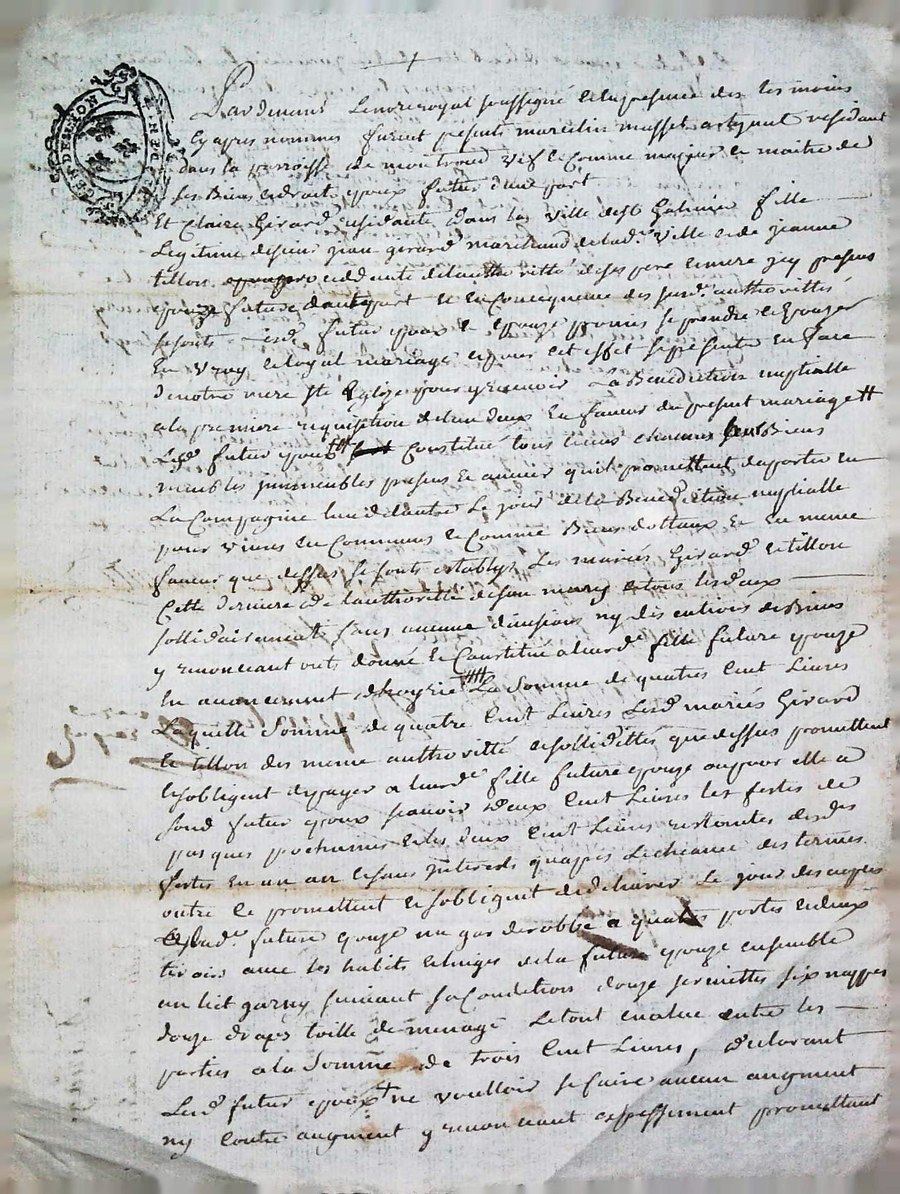 GEN DE LYON
Pardevant Lenore royal soussigné et en presence des tes moins
Cy apres nommes furent presents marcelin musset artizant residant
dans la parroisse de montroud vif et comme majeur et maitre de
ses Biens et droits epoux futur d'une part
Et Claire Girard residante dans la ville de st Galmier fille
Legitime de sieur jean girard marchand de lad.e ville et de jeanne
tillon de ses pere et mere jcy presens
epouze future d'autre part et en Concequence des susd. authorittés
se sont lesd futur epoux et epouze promis se prendre et Epouzer
En vray et loyal mariage et pour cet effet se presenter en face
de notre mere ste Eglize pour y recevoir La Benediction nuptialle
a la premiere requisition de l'un deux En faveur du present mariage #
Lesd futur epoux Constitué tous et uns chacuns leurs Biens
meubles jmmeubles presens et avenir qu'il promettent daporter en
La Compagnie l'un de lautre Le jour de la Benediction nuptialle
pour vivre en Communs et Comme Biens dottaux Et en meme
faveur que dessus se sonts establys Les mariés Girard et tillon
Cette derniere de l'authoritté de son mary et tous lesdeux
sollidairement sans aucune division ny discution de Biens
y renonceant onts donné et Constitué a leurd.e fille future epouze
en avancement d'hoyrie La Somme de quatres Cent Livres
Laquelle Somme de quatre Cent Livres Lesd mariés Girard
et tillon des meme authoritté et sollidittés que dessus promettent
et sobligent de payer a leurd.e fille future epouze ou pour elle a
sond futur epoux scavoir deux Cent Livres les festes de
pasques prochaines et les deux Cent Livres restantes desdes
festes en un an et sans jnterests qu'apres Lecheance des termes
outre ce promettent et sobligent de delivrer Le jour des nopces
a lad.e future epouze un garderobbe a quatres portes et deux
tiroirs avec les habits et linges de la future epouze ensemble
un lict garny suivant sa Condition douze serviettes six nappes
douze drapts toille de menage Le tout evalué entre les
parties a la somme de trois Cent Livres, declarant
Lesd futur epoux ne voulloir se faire aucun augment
ny Contre augment y renonceant expressement promettant